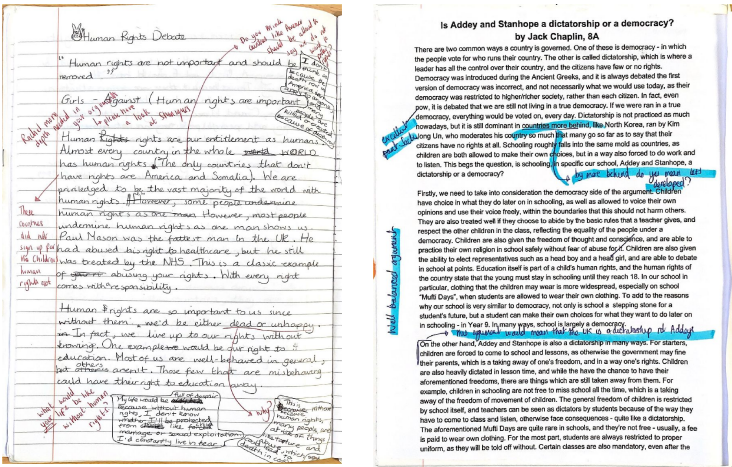 Human Rights Debate
"Human rights are not important and should be
removed"
Girls - Against (Human rights are important
Human rights are our entitlement as humans.
Almost every country in the whole WORLD
has human rights. (The only countries that don't
have rights are America and Somalia). We are
priviledged to be the vast majority of the world with
human rights. However, some people undermine
human rights as one man However, most people
undermine human rights as one man shows us.
Paul Mason was the fattest man in the UK. He
had abused his right to healthcare, but he still
was treated by the NHS. This is a classic example
of abusing your rights. With every right
comes with responsibility.
Human rights are so important to us since
without them, we'd be either dead or unhappy.
In fact, we live up to our rights without
knowing. One example would be our right to
education. Most of us are well-behaved in general,
but others aren't. Those few that are misbehaving
could have their right to education away.
These
countries
did not
sign up for
the Children's
human
rights act
what would
your life be like
without human
rights?
My life would be full of despair
because without human
rights, I don't know
marriage or sexual exploitation
I'd constantly live in fear
Why?
Is Addey and Stanhope a dictatorship or a democracy?
by Jack Chaplin, 8A
There are two common ways a country is governed. One of these is democracy - in which
the people vote for who runs their country. The other is called dictatorship, which is where a
leader has all the control over their country, and the citizens have few or no rights.
Democracy was introduced during the Ancient Greeks, and it is always debated the first
version of democracy was incorrect, and not necessarily what we would use today, as their
democracy was restricted to higher/richer society, rather than each citizen. In fact, even
now, it is debated that we are still not living in a true democracy. If we were ran in a true
democracy, everything would be voted on, every day. Dictatorship is not practiced as much
nowadays, but it is still dominant in countries more behind, like North Korea, ran by Kim
Jong Un, who moderates his country so much that many go so far as to say that their
citizens have no rights at all. Schooling roughly falls into the same mold as countries, as
children are both allowed to make their own choices, but in a way also forced to do work and
to listen. This begs the question, is schooling in specific our school, Addey and Stanhope, a
dictatorship or a democracy?
by not behind do you mean less
developed?
Firstly, we need to take into consideration the democracy side of the argument. Children
have choice in what they do later on in schooling, as well as allowed to voice their own
opinions and use their voice freely, within the boundaries that this should not harm others.
They are also treated well if they choose to abide by the basic rules that a teacher gives, and
respect the other children in the class, reflecting the equality of the people under a
democracy. Children are also given the freedom of thought and conscience, and are able to
practice their own religion in school safely without fear of abuse for it. Children are also given
the ability to elect representatives such as a head boy and a head girl, and are able to debate
in school at points. Education itself is part of a child's human rights, and the human rights of
the country state that the young must stay in schooling until they reach 18. In our school in
particular, clothing that the children may wear is more widespread, especially on school
"Mufti Days", when students are allowed to wear their own clothing. To add to the reasons
why our school is very similar to democracy, not only is school a stepping stone for a
student's future, but a student can make their own choices for what they want to do later on
in schooling - in Year 9. In many ways, school is largely a democracy.
Well balanced argument
This argument would mean that the UK is a dictatorship not Addeys
On the other hand, Addey and Stanhope is also a dictatorship in many ways. For starters,
children are forced to come to school and lessons, as otherwise the government may fine
their parents, which is taking away of one's freedom, and in a way one's rights. Children
are also heavily dictated in lesson time, and while the have the chance to have their
aforementioned freedoms, there are things which are still taken away from them. For
example, children in schooling are not free to miss school all the time, which is a taking
away of the freedom of movement of children. The general freedom of children is restricted
by school itself, and teachers can be seen as dictators by students because of the way they
have to come to class and listen, otherwise face consequences - quite like a dictatorship.
The aforementioned Mufti Days are quite rare in schools, and they're not free - usually, a fee
is paid to wear own clothing. For the most part, students are always restricted to proper
uniform, as they will be told off without. Certain classes are also mandatory, even after the